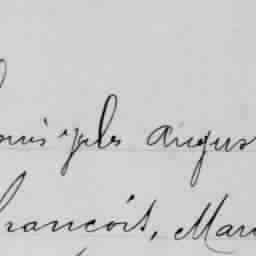 ouis jules Augus
françois, Mari